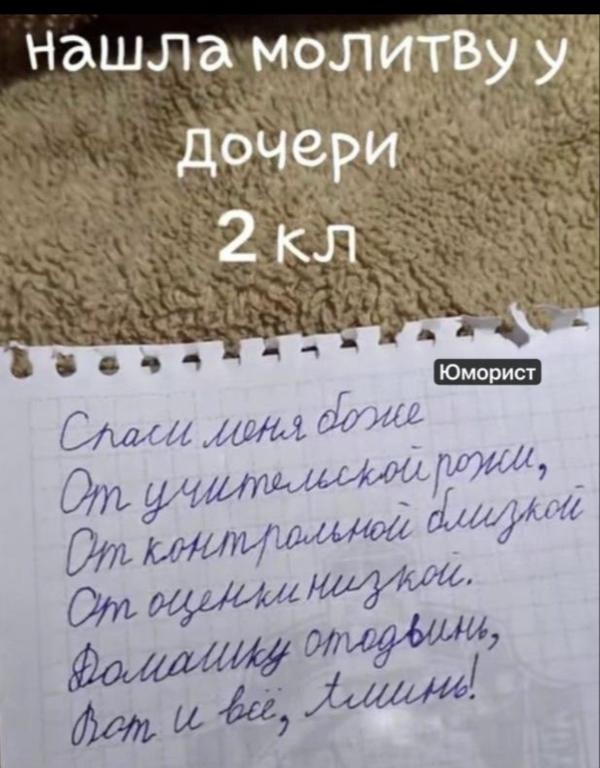 нашла молитву у
дочери
2 кл
Юморист
Спаси меня боже
От учительской рожи,
От контрольной близкой
От оценки низкой.
Домашку отодвинь,
Вот и всё, Аминь!